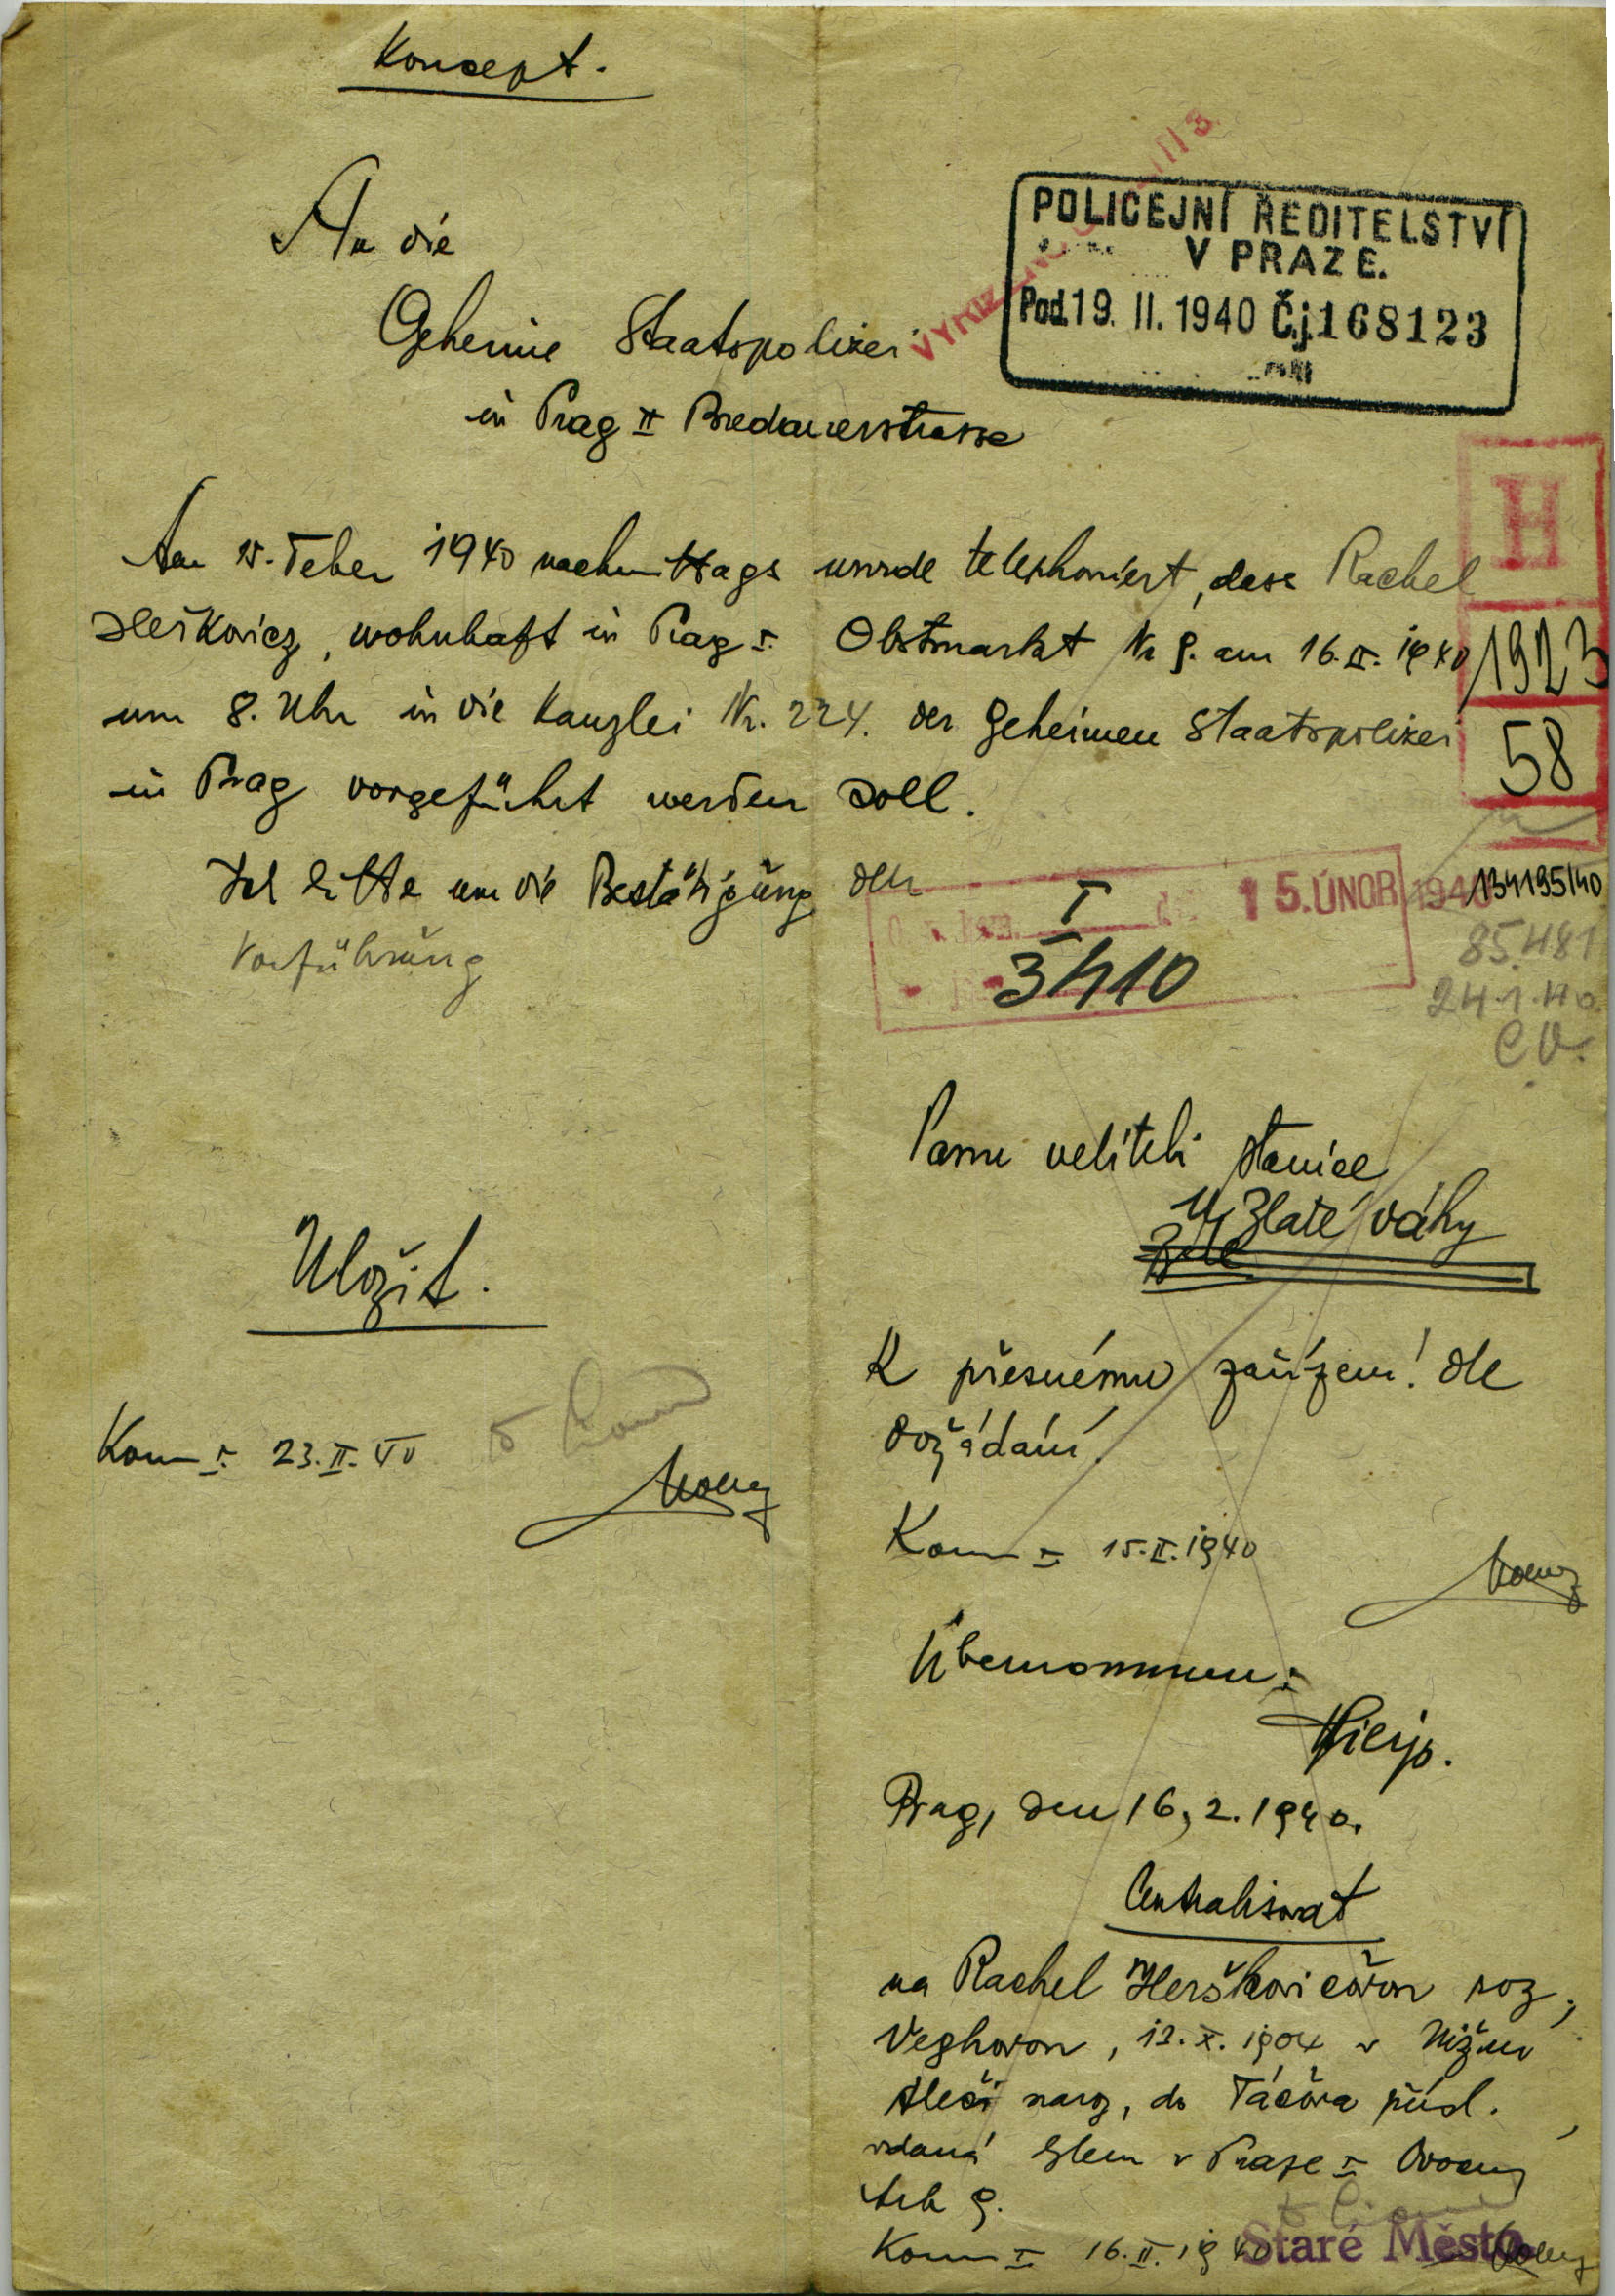 Koncept.
An die
Geheime Staatspolizei
in Prag II Bredauerstrasse
POLICEJNÍ ŘEDITELSTVÍ
V PRAZE.
Pod. 19. II. 1940 Č.j. 168123
H
1923
58
Am 15. Feber 1940 nachmittags wurde telephoniert, dass Rachel
Herškovicz, wohnhaft in Prag I. Obstmarkt Nr 9. am 16.II.1940
um 8. Uhr in die Kanzlei Nr. 224. der geheimen Staatspolizei
in Prag vorgeführt werden soll.
Ich bitte um die Bestätigung der
Vorführung
I
15. ÚNOR 1940
3410
134195/40
85.481
24.1.40.
Panu veliteli stanice
U Zlaté váhy
K přesnému zařízení dle
dožádání.
Kom I 15.II.1940
Übernommen:
Prag, den 16, 2. 1940.
Uložit.
Kom I. 23.II.40
Centralisovat
na Rachel Herškovicovou roz.
Veghovou, 12.X.1904 v Nižní
naroz, do Táčova přísl.
vdaná bytem v Praze I Ovocný
trh 9.
Kom I 16.II.1940
Staré Město